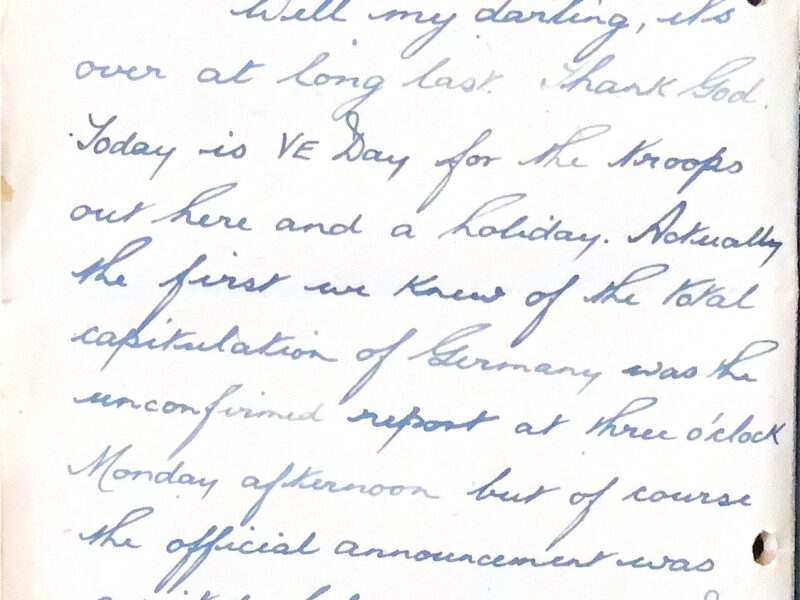 Well my darling, it's
over at long last. Thank God.
Today is VE Day for the troops
out here and a holiday. Actually
the first we knew of the total
capitulation of Germany was the
unconfirmed report at three o'clock
Monday afternoon but of course
the official announcement was